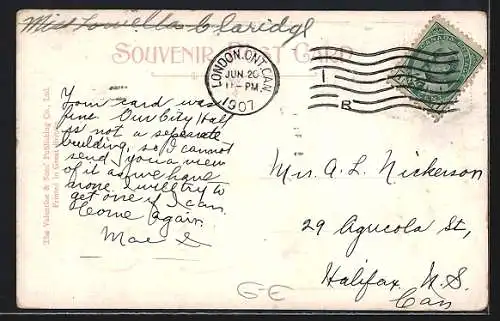 Miss Lowella Claridge
SOUVENIR POST CARD
LONDON, ONT. CAN.
JUN 20
PM
1907
I
R
Your card was
fine. Our City Hall
is not a separate
building, so I cannot
send you a view
of it as we have
none. I will try to
get one if I can.
Come again.
Mae
Mrs. A. L. Nickerson
29 Agricola St,
Halifax N.S.
Can
G-E
The Valentine & Sons' Publishing Co., Ltd.
Printed in Great